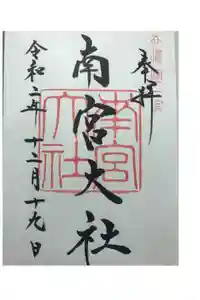 奉拝
南宮大社
南宮大社
令和二年十二月十九日